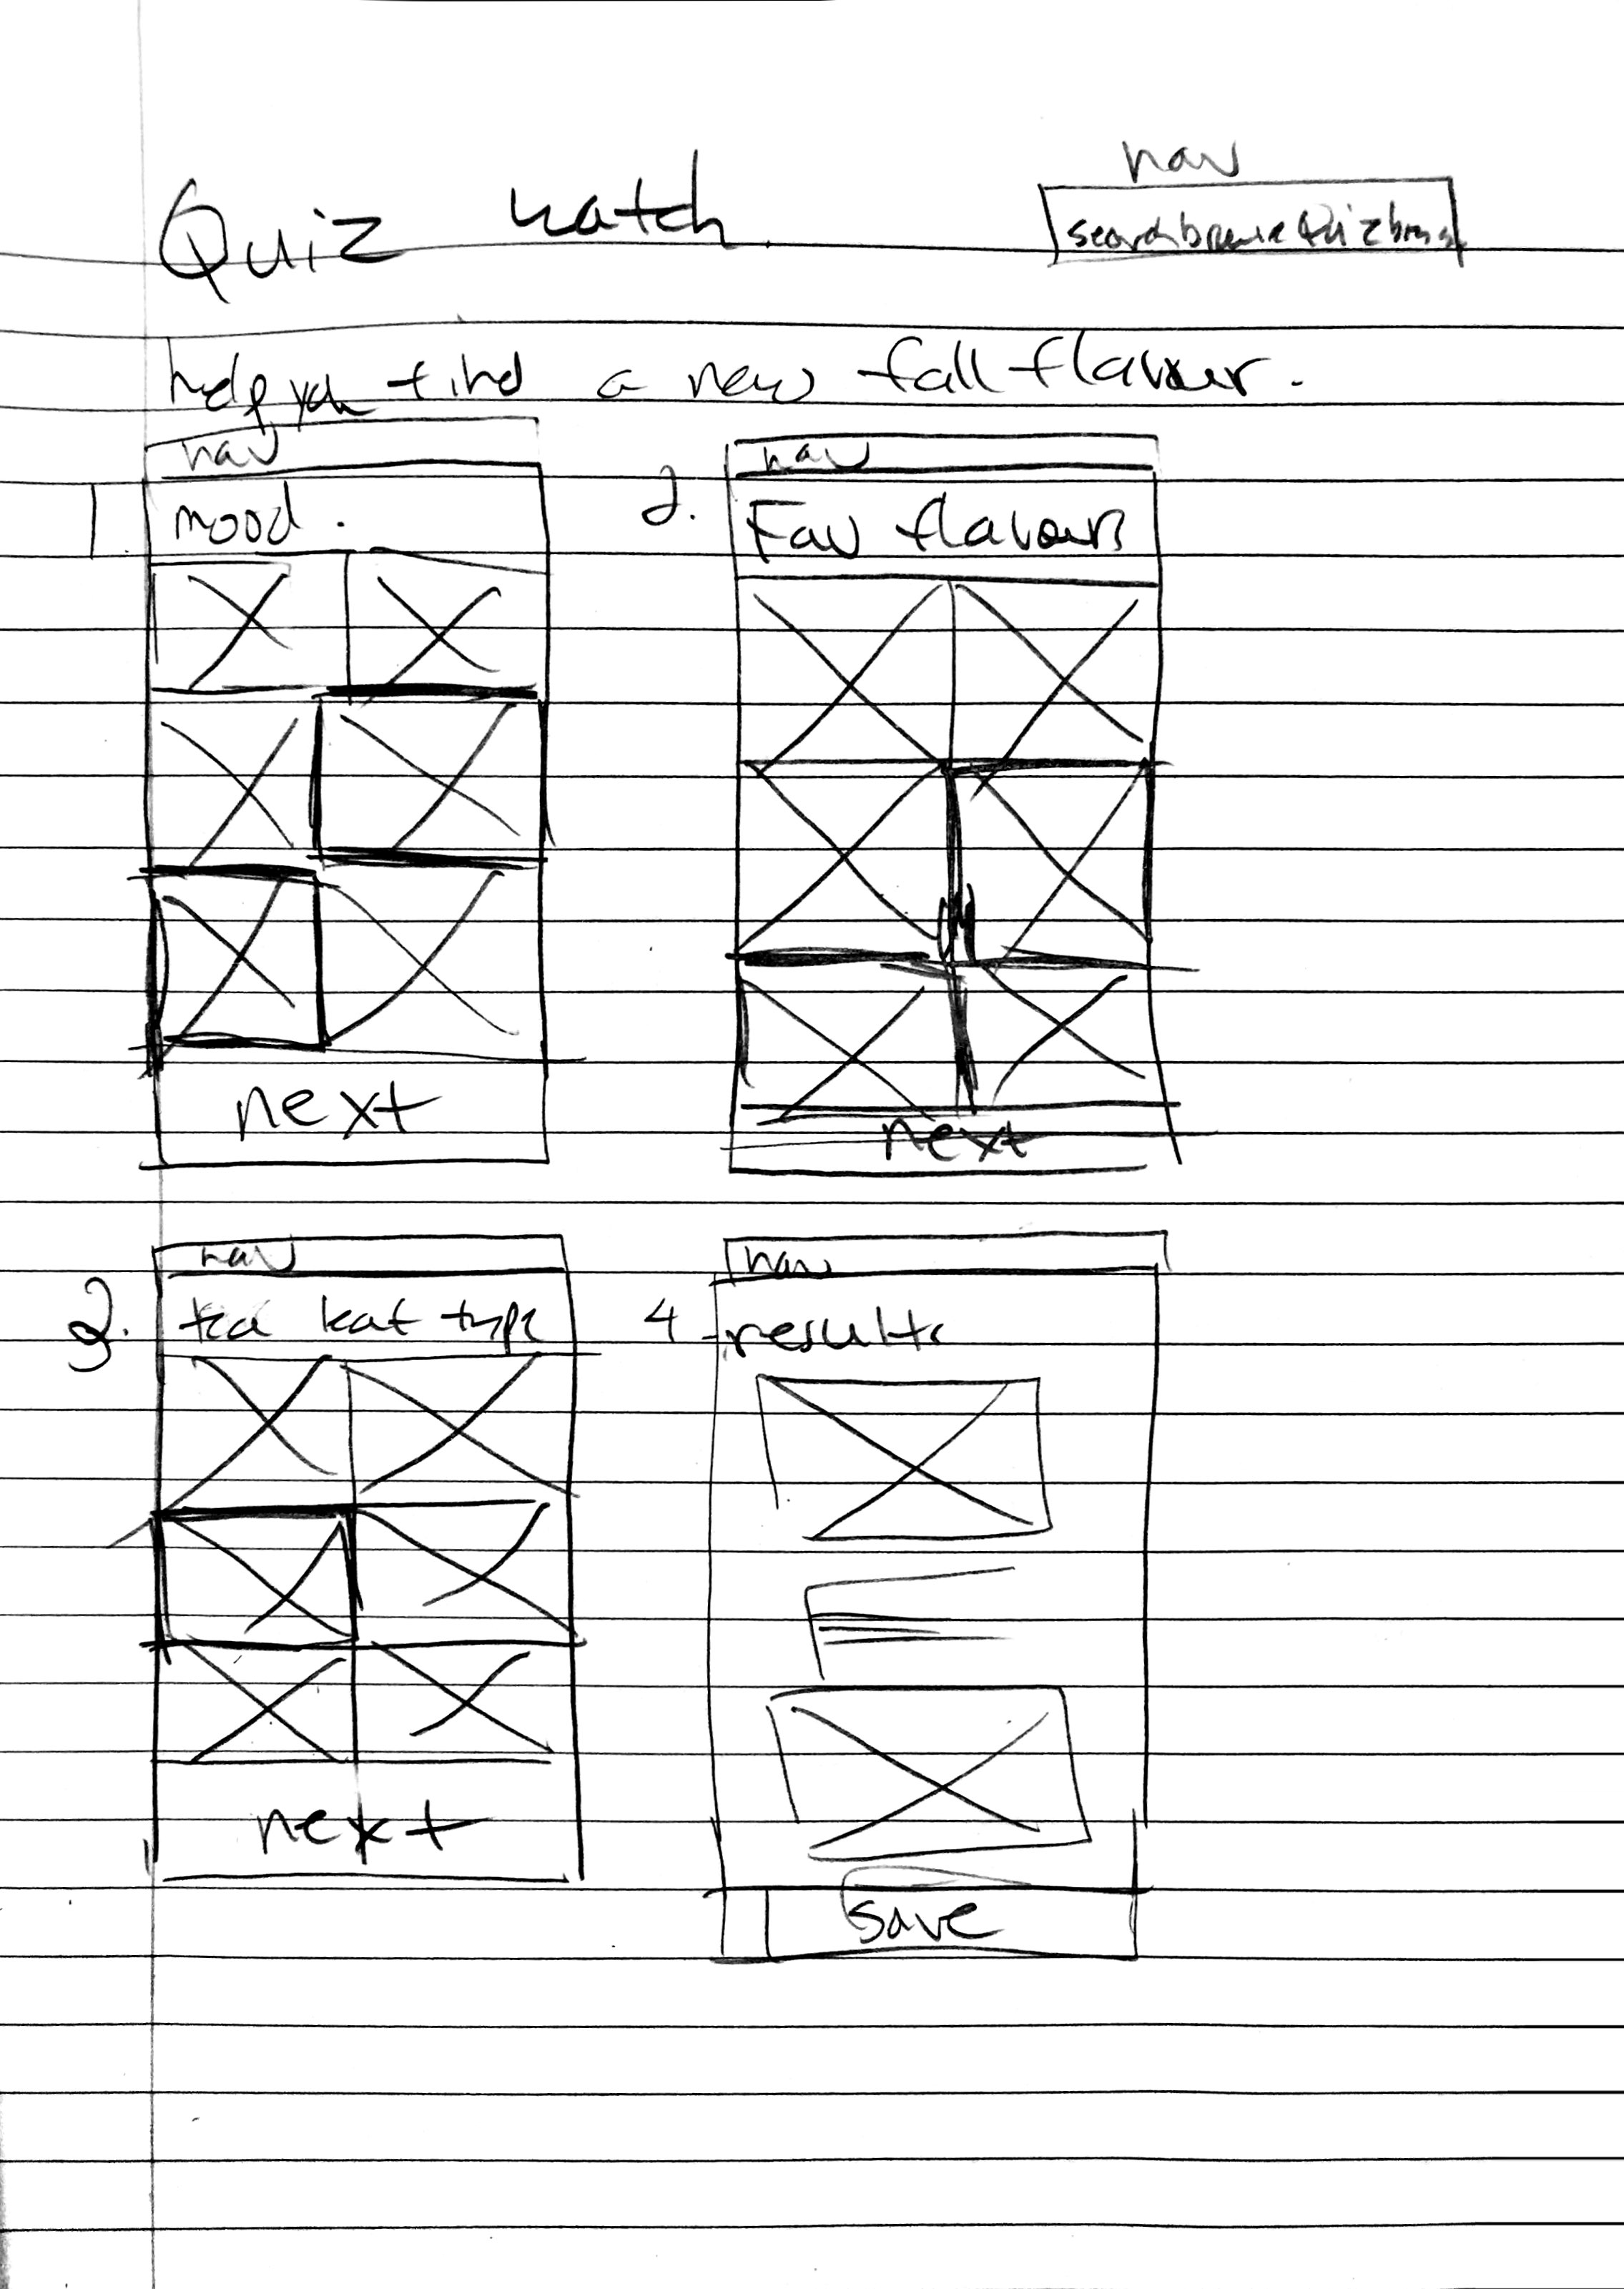 nav
Quiz
search browse Quiz
help you find a new fall flavour.
nav
1
mood.
next
nav
2.
Fav flavours
next
nav
3.
tea type
next
nav
4
results
save